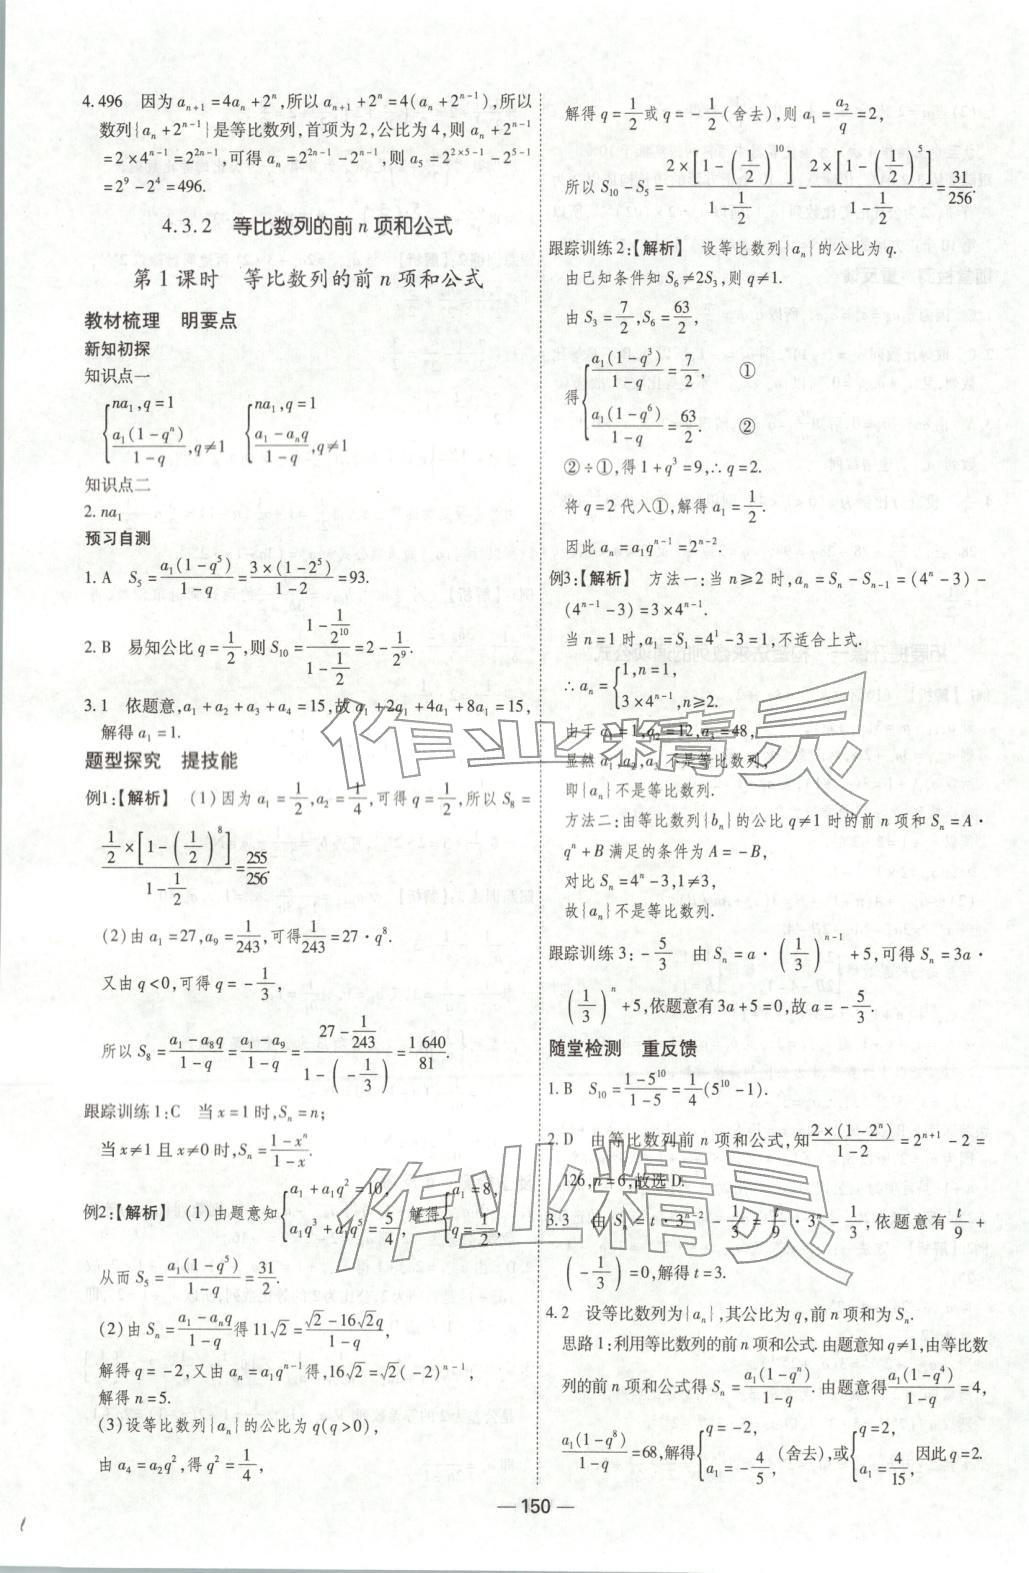 4.496 因为 aₙ₊₁=4aₙ+2ⁿ,所以 aₙ₊₁+2ⁿ=4(aₙ+2ⁿ⁻¹),所以
数列{aₙ+2ⁿ⁻¹}是等比数列,首项为 2,公比为 4,则 aₙ+2ⁿ⁻¹
=2×4ⁿ⁻¹=2²ⁿ⁻¹,可得 aₙ=2²ⁿ⁻¹-2ⁿ⁻¹,则 a₅=2²ˣ⁵⁻¹-2⁵⁻¹
=2⁹-2⁴=496.
4.3.2 等比数列的前 n 项和公式
第 1 课时 等比数列的前 n 项和公式
教材梳理 明要点
新知初探
知识点一
{na₁,q=1 {na₁,q=1
a₁(1-qⁿ)/(1-q),q≠1 (a₁-aₙq)/(1-q),q≠1
知识点二
2. na₁
预习自测
1. A S₅=a₁(1-q⁵)/(1-q)=3×(1-2⁵)/(1-2)=93.
2. B 易知公比 q=1/2,则 S₁₀=(1-1/2¹⁰)/(1-1/2)=2-1/2⁹.
3.1 依题意,a₁+a₂+a₃+a₄=15,故 a₁+2a₁+4a₁+8a₁=15,
解得 a₁=1.
题型探究 提技能
例1:【解析】 (1)因为 a₁=1/2,a₂=1/4,可得 q=1/2,所以 S₈=
1/2×[1-(1/2)⁸]/(1-1/2)=255/256.
(2)由 a₁=27,a₉=1/243,可得1/243=27·q⁸.
又由 q<0,可得 q=-1/3,
所以 S₈=(a₁-a₈q)/(1-q)=(a₁-a₉)/(1-q)=(27-1/243)/(1-(-1/3))=1 640/81.
跟踪训练1:C 当 x=1 时,Sₙ=n;
当 x≠1 且 x≠0 时,Sₙ=(1-xⁿ)/(1-x).
例2:【解析】 (1)由题意知{a₁+a₁q²=10, a₁q³+a₁q⁵=5/4, 解得{a₁=8, q=1/2,
从而 S₅=a₁(1-q⁵)/(1-q)=31/2.
(2)由 Sₙ=(a₁-aₙq)/(1-q)得 11√2=(√2-16√2q)/(1-q),
解得 q=-2,又由 aₙ=a₁qⁿ⁻¹得,16√2=√2(-2)ⁿ⁻¹,
解得 n=5.
(3)设等比数列{aₙ}的公比为 q(q>0),
由 a₄=a₂q²,得 q²=1/4,
解得 q=1/2或 q=-1/2(舍去),则 a₁=a₂/q=2,
所以 S₁₀-S₅=2×[1-(1/2)¹⁰]/(1-1/2)-2×[1-(1/2)⁵]/(1-1/2)=31/256.
跟踪训练2:【解析】 设等比数列{aₙ}的公比为 q.
由已知条件知 S₆≠2S₃,则 q≠1.
由 S₃=7/2,S₆=63/2,
得{a₁(1-q³)/(1-q)=7/2, ①
a₁(1-q⁶)/(1-q)=63/2. ②
②÷①,得 1+q³=9,∴q=2.
将 q=2 代入①,解得 a₁=1/2.
因此 aₙ=a₁qⁿ⁻¹=2ⁿ⁻².
例3:【解析】 方法一:当 n≥2 时,aₙ=Sₙ-Sₙ₋₁=(4ⁿ-3)-
(4ⁿ⁻¹-3)=3×4ⁿ⁻¹.
当 n=1 时,a₁=S₁=4¹-3=1,不适合上式.
∴aₙ={1,n=1,
3×4ⁿ⁻¹,n≥2.
由于 a₁=1,a₂=12,a₃=48,
显然 a₁,a₂,a₃不是等比数列,
即{aₙ}不是等比数列.
方法二:由等比数列{bₙ}的公比 q≠1 时的前 n 项和 Sₙ=A·
qⁿ+B 满足的条件为 A=-B,
对比 Sₙ=4ⁿ-3,1≠3,
故{aₙ}不是等比数列.
跟踪训练3:-5/3 由 Sₙ=a·(1/3)ⁿ⁻¹+5,可得 Sₙ=3a·
(1/3)ⁿ+5,依题意有 3a+5=0,故 a=-5/3.
随堂检测 重反馈
1. B S₁₀=(1-5¹⁰)/(1-5)=1/4(5¹⁰-1).
2. D 由等比数列前 n 项和公式,知2×(1-2ⁿ)/(1-2)=2ⁿ⁺¹-2=
126,n=6,故选 D.
3.3 由 Sₙ=t·3ⁿ⁻²-1/3=t/9·3ⁿ-1/3,依题意有t/9+
(-1/3)=0,解得 t=3.
4.2 设等比数列为{aₙ},其公比为 q,前 n 项和为 Sₙ.
思路1:利用等比数列的前 n 项和公式.由题意知 q≠1,由等比数
列的前 n 项和公式得 Sₙ=a₁(1-qⁿ)/(1-q).由题意得a₁(1-q⁴)/(1-q)=4,
a₁(1-q⁸)/(1-q)=68,解得{q=-2, a₁=-4/5,(舍去),或{q=2, a₁=4/15, 因此 q=2.
— 150 —
作业精灵
作业精灵